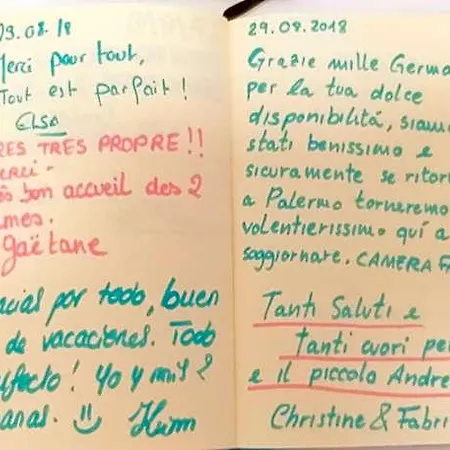 03.08.18
Merci pour tout,
Tout est parfait !
ELSA
TRES TRES PROPRE !!
erci -
ès bon accueil des 2
mes.
Gaëtane
acias por todo, buen
de vacaciones. Todo
fecto! Yo y mis 2
anas.
29.08.2018
Grazie mille Germa
per la tua dolce
disponibilitá, siamo
stati benissimo e
sicuramente se ritor
a Palermo torneremo
volentierissimo quí a
soggiornare. CAMERA FA
Tanti Saluti e
tanti cuori per
e il piccolo Andre
Christine & Fabri